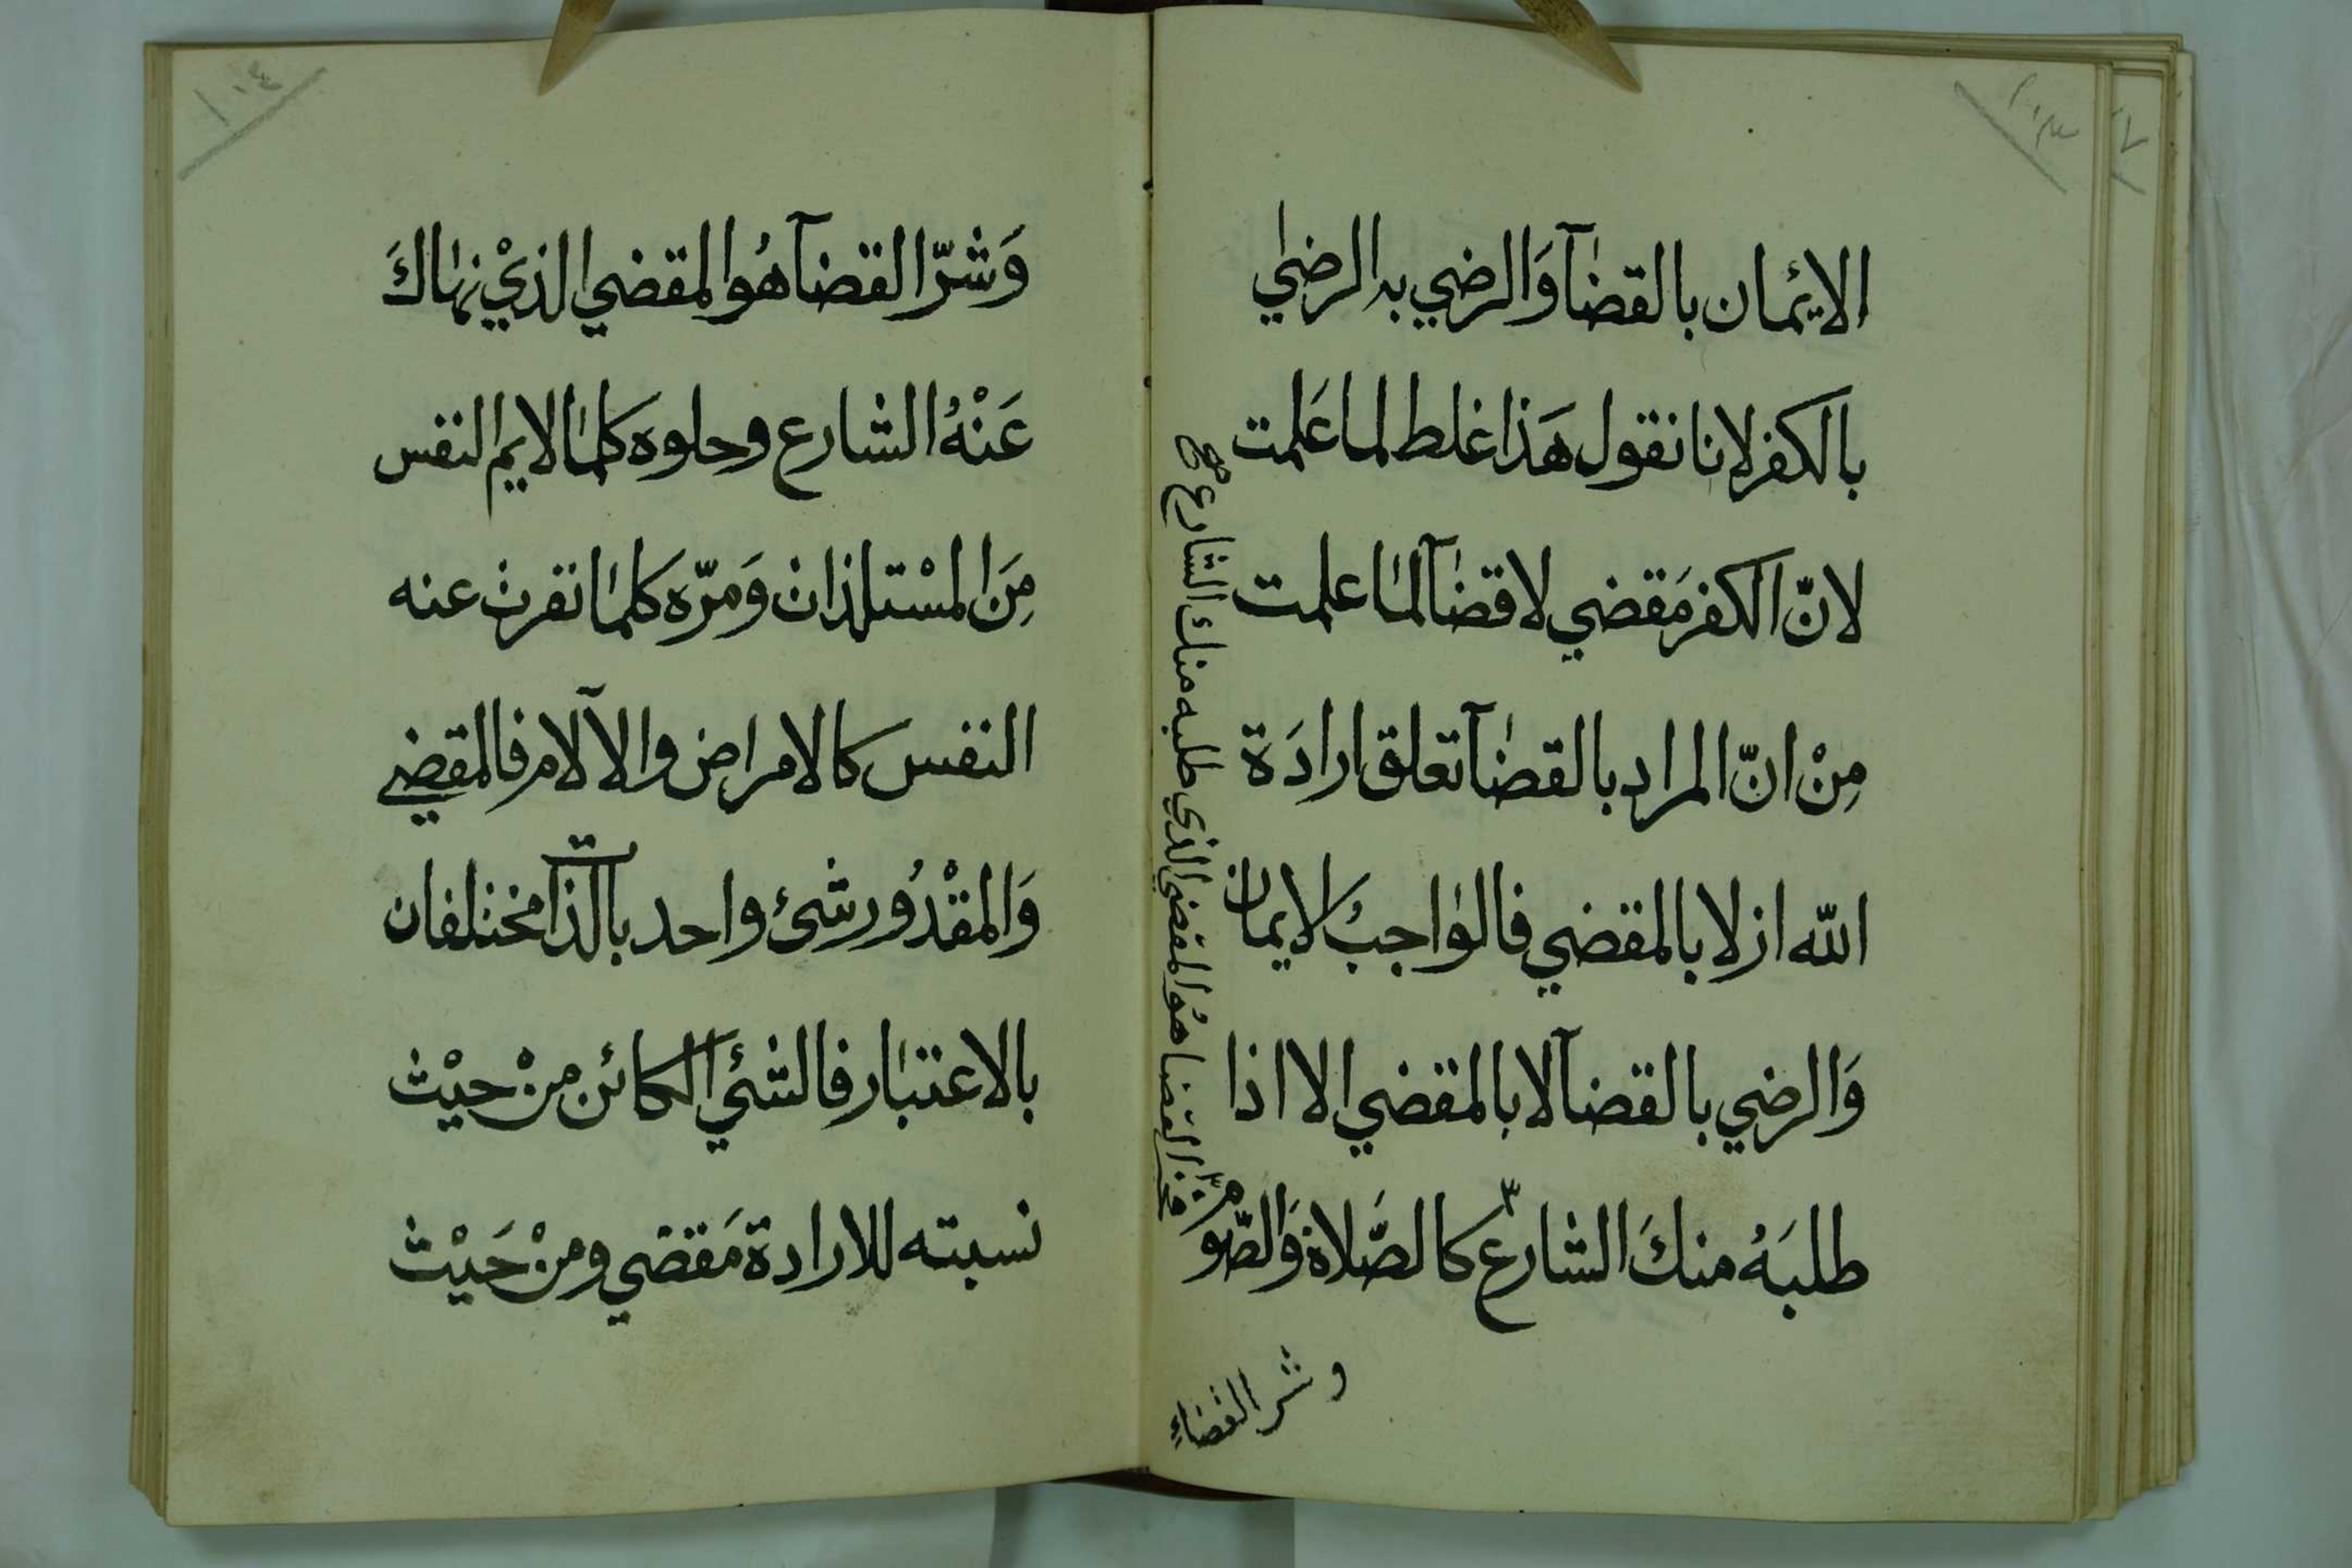 ١٠٣
الايمان بالقضآ وَالرضي به الرضي
بالكفر لانا نقول هَذا غلط لما عَلمت
لانّ الكفر مَقضي لا قضآ لما علمت
مِنْ انّ المراد بالقضآ تعلق ارادَة
الله ازلا بالمقضي فالواجبُ الايمان
وَالرضي بالقضآ لا بالمقضي الا اذا
طلبَهُ منكَ الشارع كالصَّلاة وَالصّوم
فخير القضا هُو المقضي الذي طلبه منك الشارع صح
وشر القضاء
١٠٤
وَشرّ القضآ هُو المقضي الذيْ نهاكَ
عَنْهُ الشارع وحلوه كلما لايم النفس
مِنَ المسْتلذات وَمرّه كلما نفرت عنه
النفس كالامراض والآلام فالمقضي
وَالمقْدُور شئ واحد بالذات مختلفان
بالاعتبار فالشئ الكائن منْ حيْث
نسبته للارادة مَقضي ومنْ حَيْث